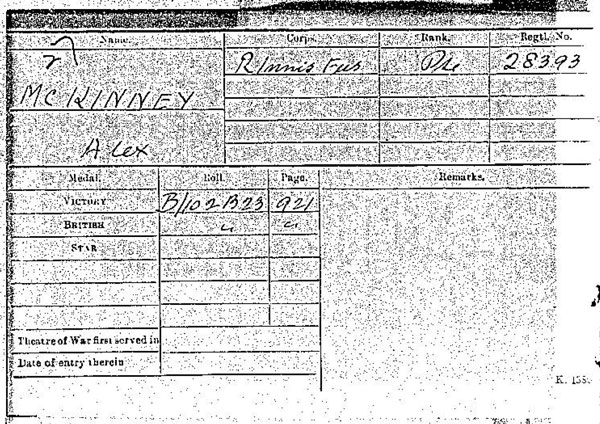 Name. Corps. Rank. Regtl. No.
R Innis Fus Pte 28393
MCKINNEY
Alex
Medal. Roll. Page. Remarks.
VICTORY B/102 B23 921
BRITISH " "
STAR
Theatre of War first served in
Date of entry therein
K. 1380